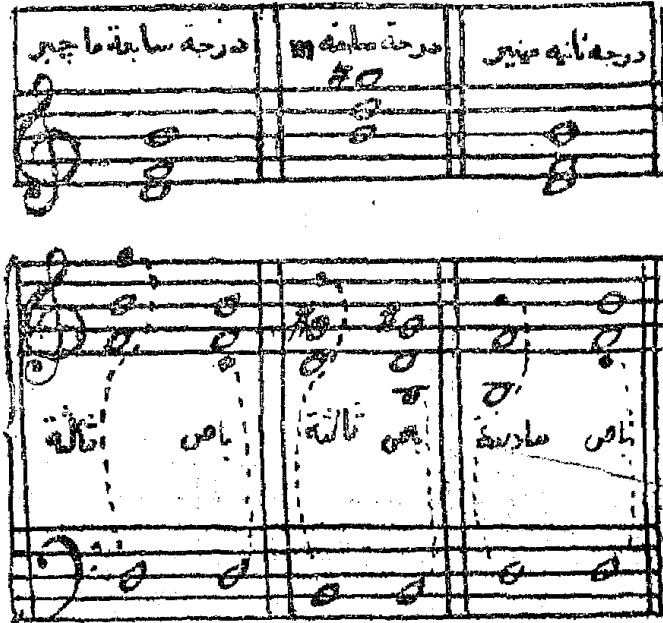 درجه ثانيه مينير
درجة سابعة m
درجة سابعة ماجير
باص سادسة
باص ثالثة
باص ثالثة